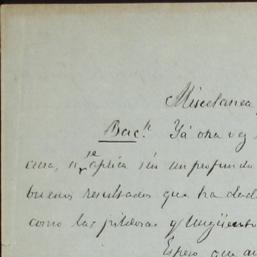 Miscelanea
Bac.h Yá otra vez
cura, se aplica sin un profundo
buenos resultados que ha dad
como las píldoras y Ungüento
Espero que au